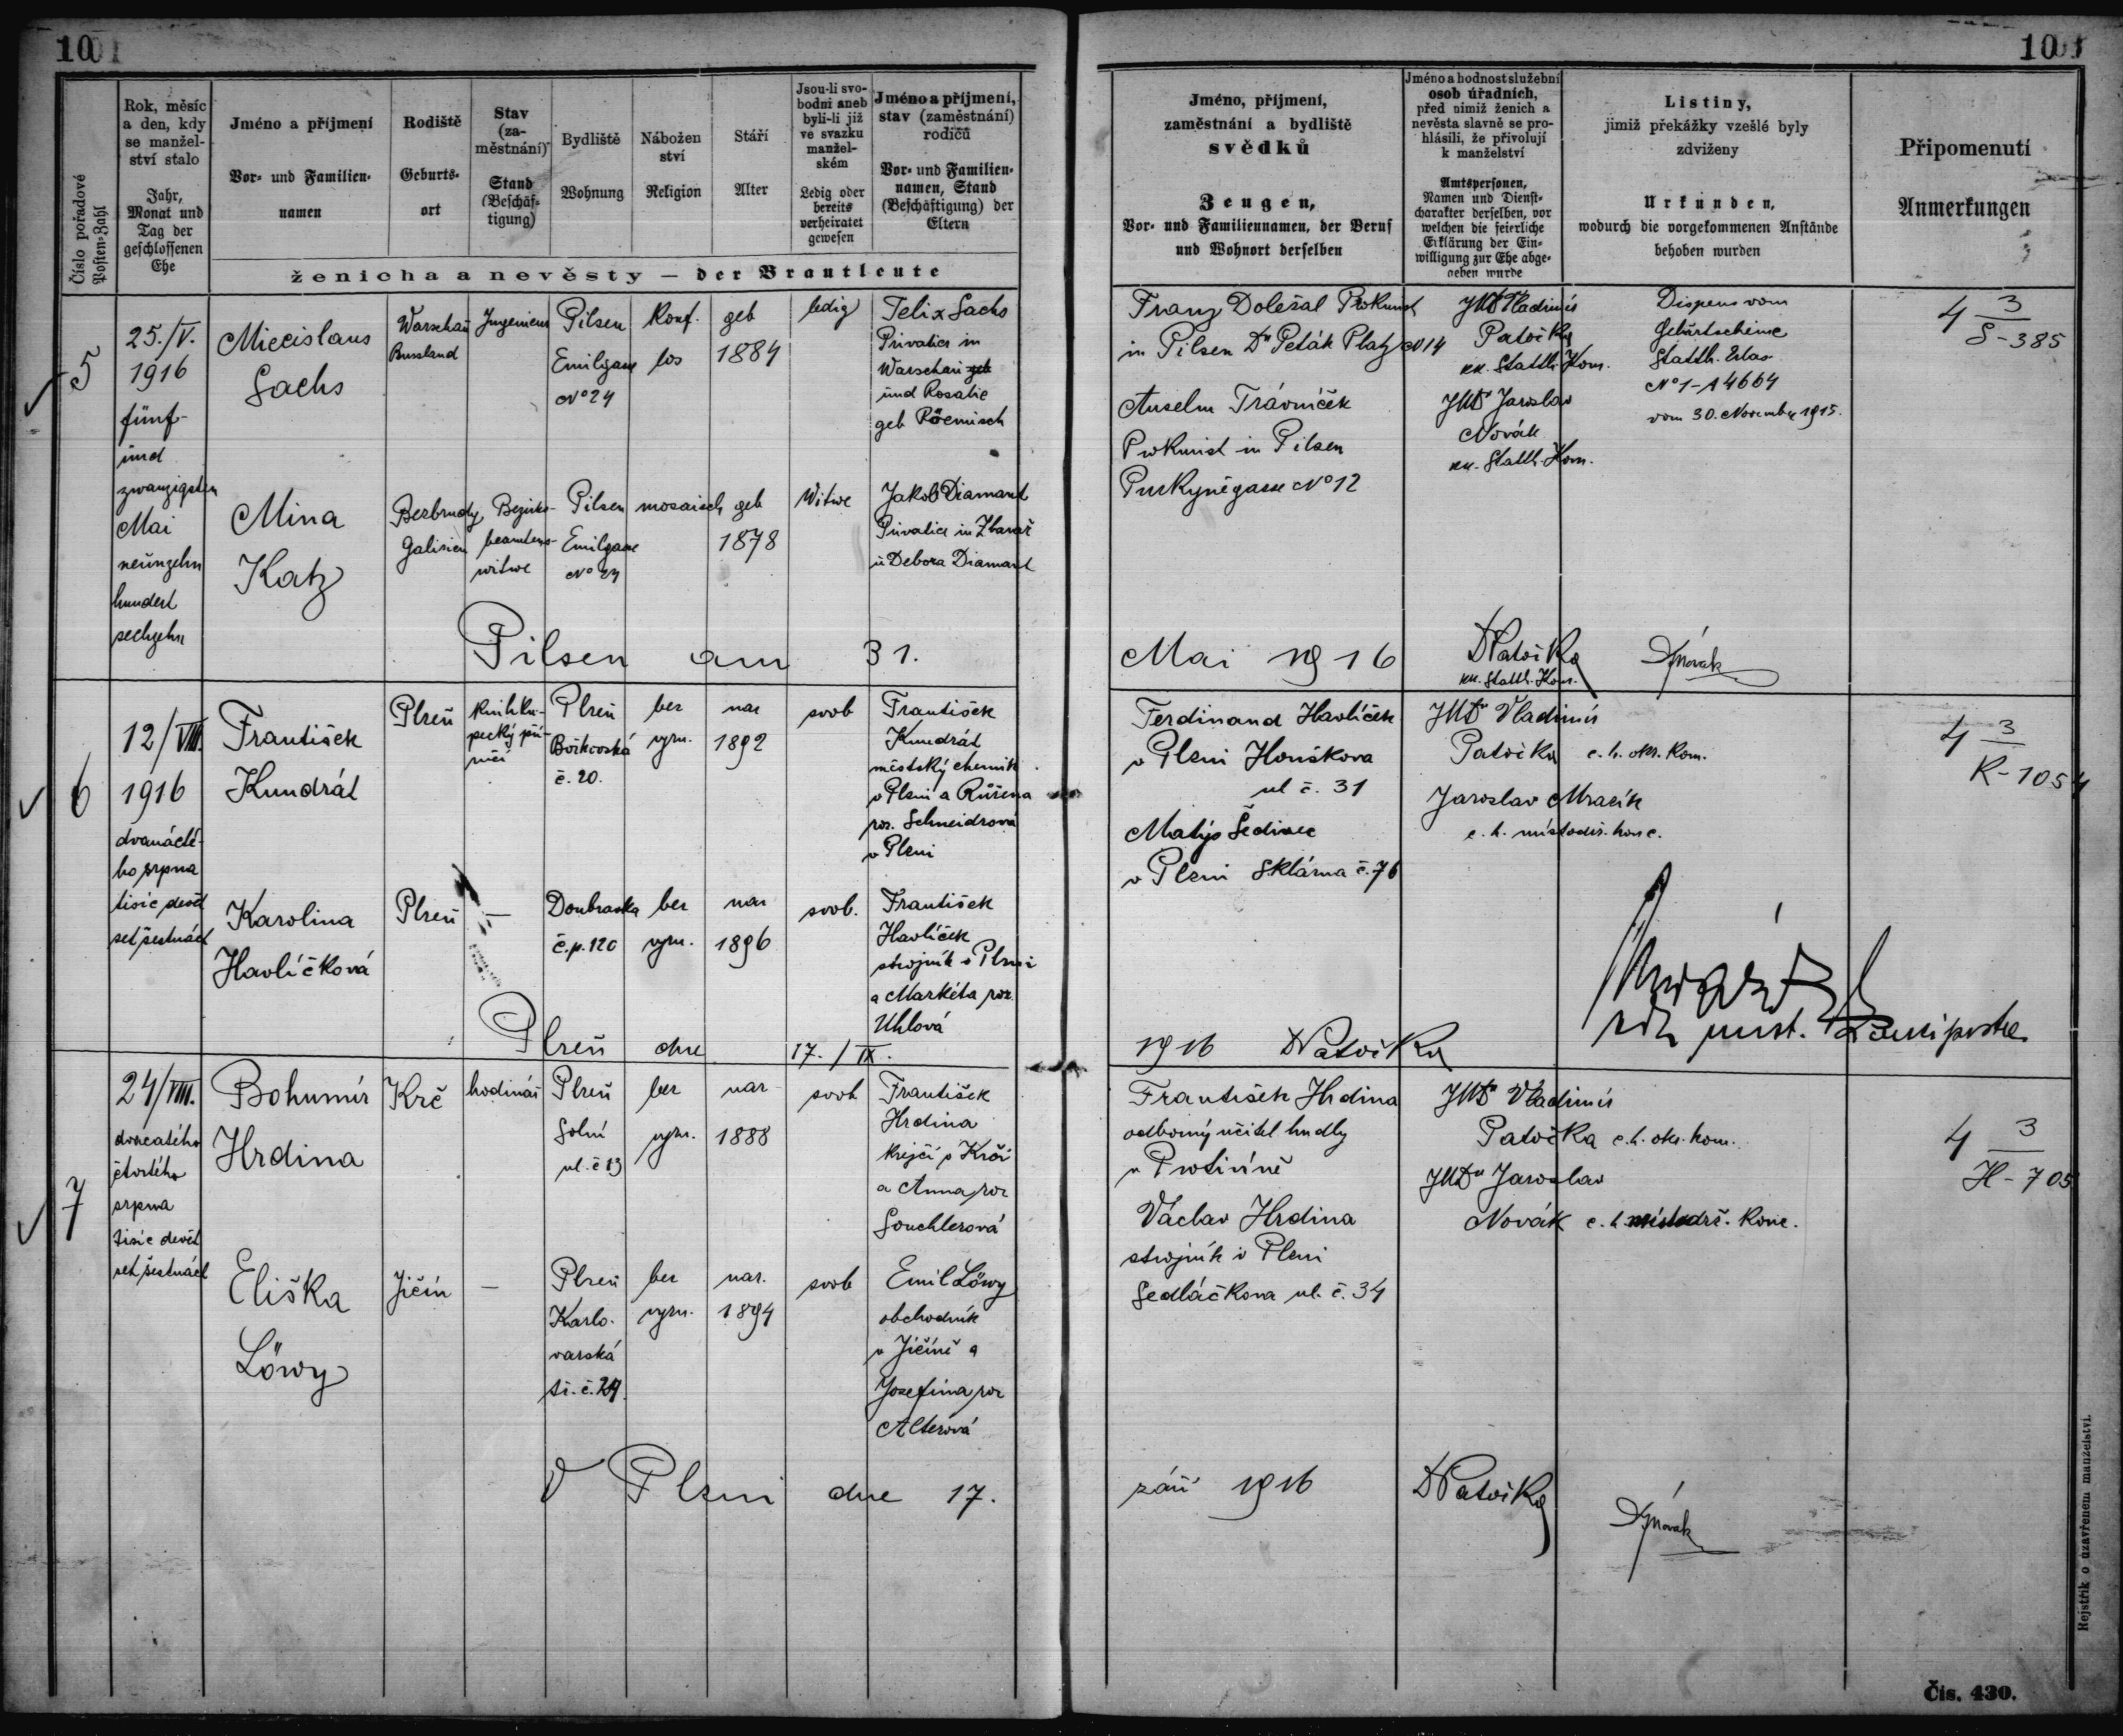 10
10
Číslo pořadové
Posten-Zahl
Rok, měsíc
a den, kdy
se manžel-
ství stalo
Jahr,
Monat und
Tag der
geschlossenen
Ehe
Jméno a příjmení
Vor- und Familien-
namen
Rodiště
Geburts-
ort
Stav
(za-
městnání)
Stand
(Beschäf-
tigung)
Bydliště
Wohnung
Nábožen
ství
Religion
Stáří
Alter
Jsou-li svo-
bodni aneb
byli-li již
ve svazku
manžel-
ském
Ledig oder
bereits
verheiratet
gewesen
Jméno a příjmení,
stav (zaměstnání)
rodičů
Vor- und Familien-
namen, Stand
(Beschäftigung) der
Eltern
ženicha a nevěsty — der Brautleute
Jméno, příjmení,
zaměstnání a bydliště
svědků
Zeugen,
Vor- und Familiennamen, der Beruf
und Wohnort derselben
Jméno a hodnost služební
osob úřadních,
před nimiž ženich a
nevěsta slavně se pro-
hlásili, že přivolují
k manželství
Amtspersonen,
Namen und Dienst-
charakter derselben, vor
welchen die feierliche
Erklärung der Ein-
willigung zur Ehe abge-
geben wurde
Listiny,
jimiž překážky vzešlé byly
zdviženy
Urkunden,
wodurch die vorgekommenen Anstände
behoben wurden
Připomenutí
Anmerkungen
5
25./V.
1916
fünf-
und
zwanzigsten
Mai
neunzehn
hundert
sechzehn
Miecislaus
Sachs
Warschau
Russland
Ingenieur
Pilsen
Emilgasse
No 24
Konf.
los
geb
1884
ledig
Felix Sachs
Privatier in
Warschau geb
und Rosalie
geb Röemisch
Franz Doležal Prokurist
in Pilsen Dr Peták Platz No 14
Anselm Trávníček
Prokurist in Pilsen
Purkyněgasse No 12
JUDr Vladimír
Patočka
kk. Statth. Kom.
JUDr Jaroslav
Novák
kk. Statth. Kom.
Dispens vom
Geburtscheine
Statth. Erlas
No 1-A 4664
vom 30. November 1915.
4 3/S-385
Mina
Katz
Bezbrudy
Galizien
Bezirks-
beamtens-
witwe
Pilsen
Emilgasse
No 24
mosaisch
geb
1878
Witwe
Jakob Diamant
Privatier in Zbaraž
u Debora Diamant
Pilsen am 31. Mai 1916
DrPatočka
kk. Statth. Kom.
DrNovák
6
12/VIII.
1916
dvanácté-
ho srpna
tisíc devět
set šestnáct
František
Kundrát
Plzeň
knihku-
pecký pří-
ručí
Plzeň
Bořkovská
č. 20.
bez
vyzn.
nar
1892
svob
František
Kundrát
městský chemik
v Plzni a Růžena
roz. Schneidrová
v Plzni
Ferdinand Havlíček
v Plzni Houškova
ul č. 31
Matýs Šedivec
v Plzni Sklárna č. 76
JUDr Vladimír
Patočka c. k. okr. kom.
Jaroslav Mrazík
c. k. místodrž. konc.
4 3/K-1054
Karolina
Havlíčková
Plzeň
—
Doubravka
č. p. 120
bez
vyzn.
nar
1896
svob.
František
Havlíček
strojník v Plzni
a Markéta roz.
Uhlová
Plzeň dne 17./IX. 1916 DrPatočka
7
24/VIII.
dvacátého
čtvrtého
srpna
tisíc devět
set šestnáct
Bohumír
Hrdina
Krč
hodinář
Plzeň
Solní
ul. č 13
bez
vyzn.
nar
1888
svob
František
Hrdina
krejčí v Krči
a Anna roz
Souchlerová
František Hrdina
odborný učitel hudby
v Protivíně
Václav Hrdina
strojník v Plzni
Sedláčkova ul. č. 34
JUDr Vladimír
Patočka c. k. okr. kom.
JUDr Jaroslav
Novák c. k. místodrž. konc.
4 3/H-705
Eliška
Löwy
Jičín
—
Plzeň
Karlo-
varská
tř. č. 29.
bez
vyzn.
nar.
1894
svob
Emil Löwy
obchodník
v Jičíně a
Josefina roz
Alterová
V Plzni dne 17. září 1916 DrPatočka
DrNovák
Rejstřík o uzavřeném manželství.
Čís. 430.